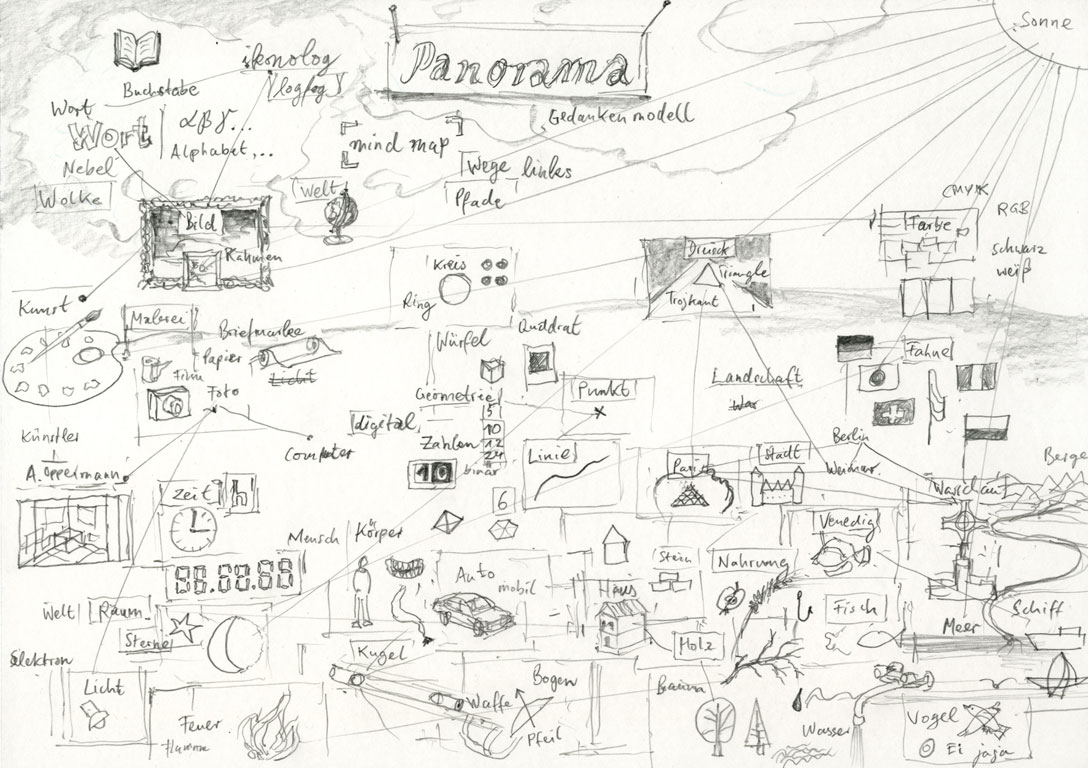 Sonne
Panorama
ikonolog
logfog
Buchstabe
Gedankenmodell
Wort
Wort
αβγ...
Alphabet,..
mind map
Nebel
Wolke
Welt
Wege links
Pfade
CMYK
RGB
Farbe
schwarz
weiß
Bild
Rahmen
Kreis
Ring
Dreieck
Triangle
Trojkaut
Kunst
Malerei
Briefmarke
Papier
Film
Licht
Foto
Würfel
Quadrat
Fahne
Geometrie
Punkt
Landschaft
War
digital
Zahlen
5
10
12
24
10
binär
Computer
Linie
Künstler
A. Oppermann
Paris
Stadt
Berlin
Weimar
Warschau
Berge
Zeit
h
6
Venedig
Mensch
Körper
88.88.88
Auto
mobil
Haus
Stein
Nahrung
Fisch
Meer
Schiff
Welt
Raum
Sterne
Elektron
Licht
Kugel
Holz
Bogen
Waffe
Pfeil
Baum
Wasser
Vogel
Ei jaja
Feuer
flamme